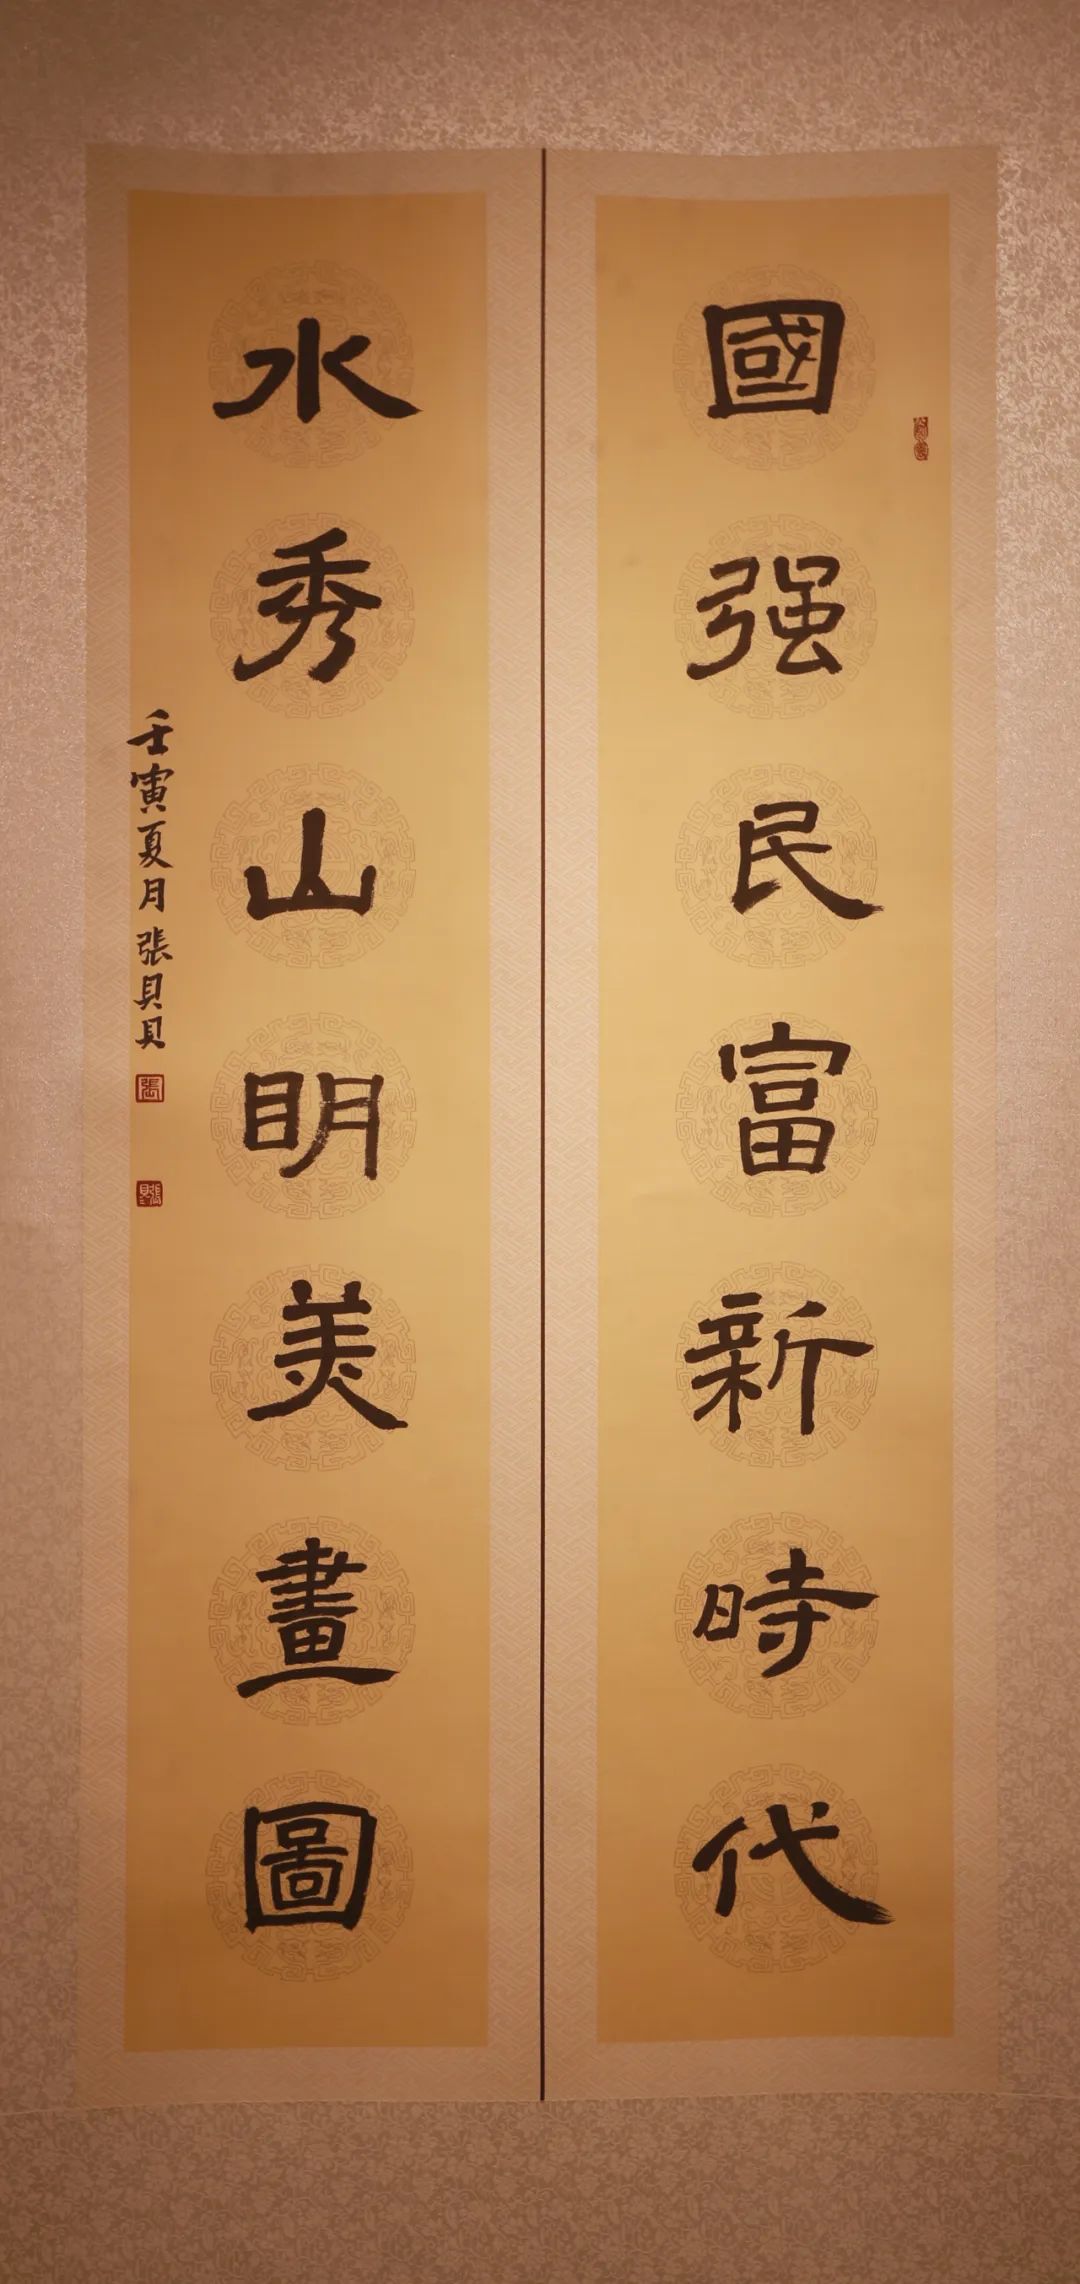 國强民富新時代
水秀山明美畫圖
壬寅夏月張貝貝
張